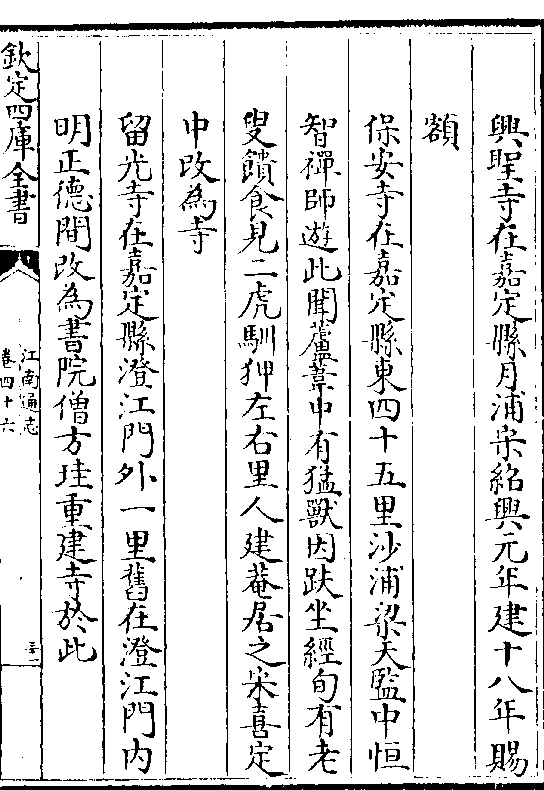 興聖寺在嘉定縣月浦宋紹興元年建十八年賜
額
保安寺在嘉定縣東四十五里沙浦梁天監中恒
智禪師遊此聞蘆葦中有猛獸因趺坐經旬有老
叟饋食見二虎馴狎左右里人建菴居之宋嘉定
中改為寺
留光寺在嘉定縣澄江門外一里舊在澄江門内
明正德間改為書院僧方珪重建寺於此
欽定四庫全書
江南通志
卷四十六